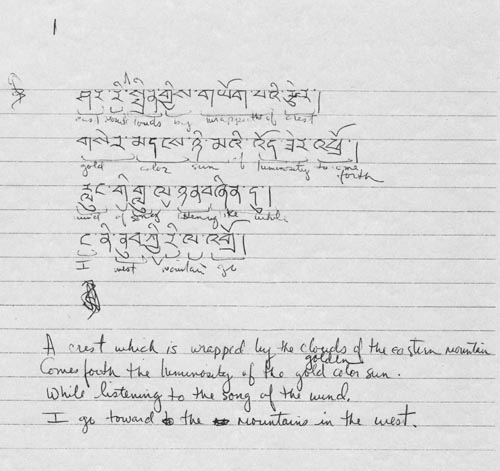 1
ཤར་རི་སྤྲིན་གྱིས་གཡོག་པའི་རྩེར།
east clouds by wrapped of crest
གསེར་མདངས་ཉི་མའི་འོད་ཟེར་འཕྲོ།
gold color sun of luminosity to come forth
རླུང་གི་གླུ་ལ་ཉན་བཞིན་དུ།
wind of song listening like while
ང་ནི་ནུབ་ཀྱི་རི་ལ་འགྲོ།
I west mountain go
A crest which is wrapped by the clouds of the eastern mountain
golden
Comes forth the luminosity of the gold color sun.
While listening to the song of the wind.
I go toward the mountains in the west.